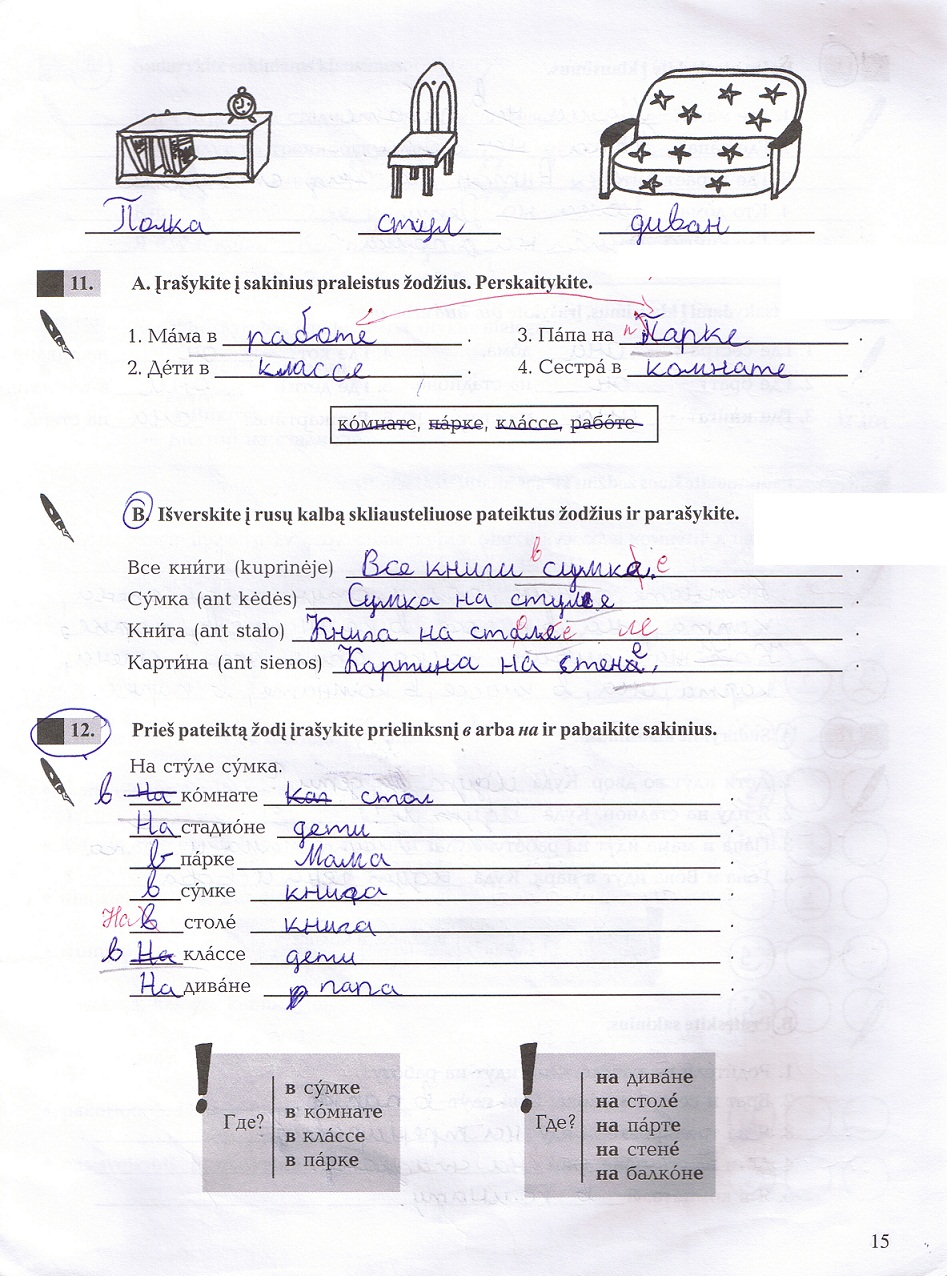 Полка стул диван
11. A. Įrašykite į sakinius praleistus žodžius. Perskaitykite.
1. Ма́ма в работе . 3. Па́па на п Парке .
2. Де́ти в классе . 4. Сестра́ в комнате .
ко́мнате, па́рке, кла́ссе, рабо́те
B. Išverskite į rusų kalbą skliausteliuose pateiktus žodžius ir parašykite.
Все кни́ги (kuprinėje) Все книги в сумке .
Су́мка (ant kėdės) Сумка на стуле .
Кни́га (ant stalo) Книга на столе ле .
Карти́на (ant sienos) Картина на стене .
12. Prieš pateiktą žodį įrašykite prielinksnį в arba на ir pabaikite sakinius.
На сту́ле су́мка.
в На ко́мнате стол .
На стадио́не дети .
в па́рке Мама .
в су́мке книга .
На в столе́ книга .
в На кла́ссе дети .
На дива́не папа .
! Где? в су́мке
в ко́мнате
в кла́ссе
в па́рке
! Где? на дива́не
на столе́
на па́рте
на стене́
на балко́не
15